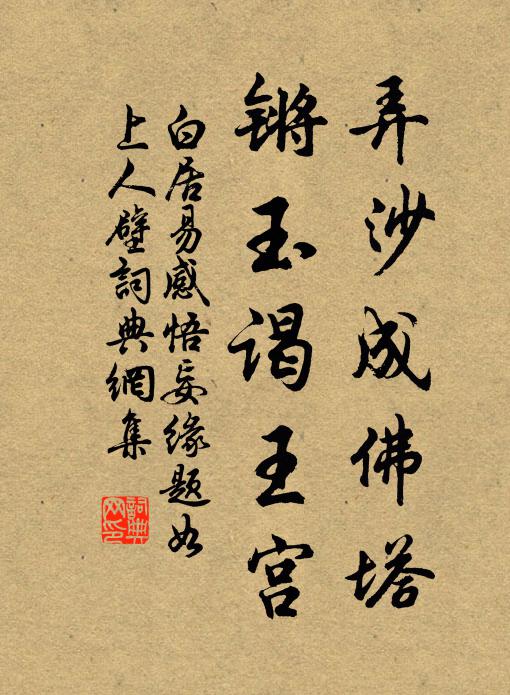 弄沙成佛塔
锵玉谒王宫
白居易感悟妄缘题如
上人壁詞典網集
詞典
网印